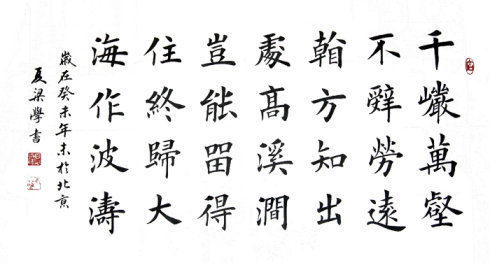 千巖萬壑
不辭勞遠
看方知出
處高溪澗
豈能留得
住終歸大
海作波濤
歲在癸未年末於北京
夏梁學書